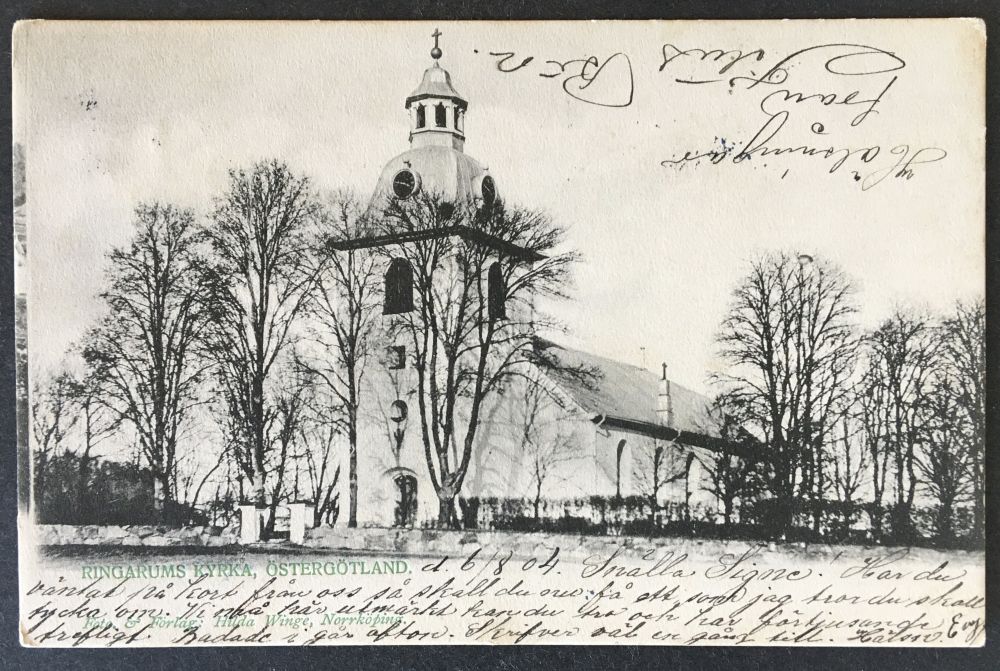 Hälsningar
från Titus
Ben.
RINGARUMS KYRKA, ÖSTERGÖTLAND.
d. 6/8 04. Snälla Signe! Har du
väntat på kort från oss så skall du nu få ett som jag tror du skall
tycka om. Vi må här utmärkt kan du tro och har förtjusande
Foto. & Förlag: Hilda Winge, Norrköping.
trefligt. Badade i går afton. Skrifver väl en gång till.